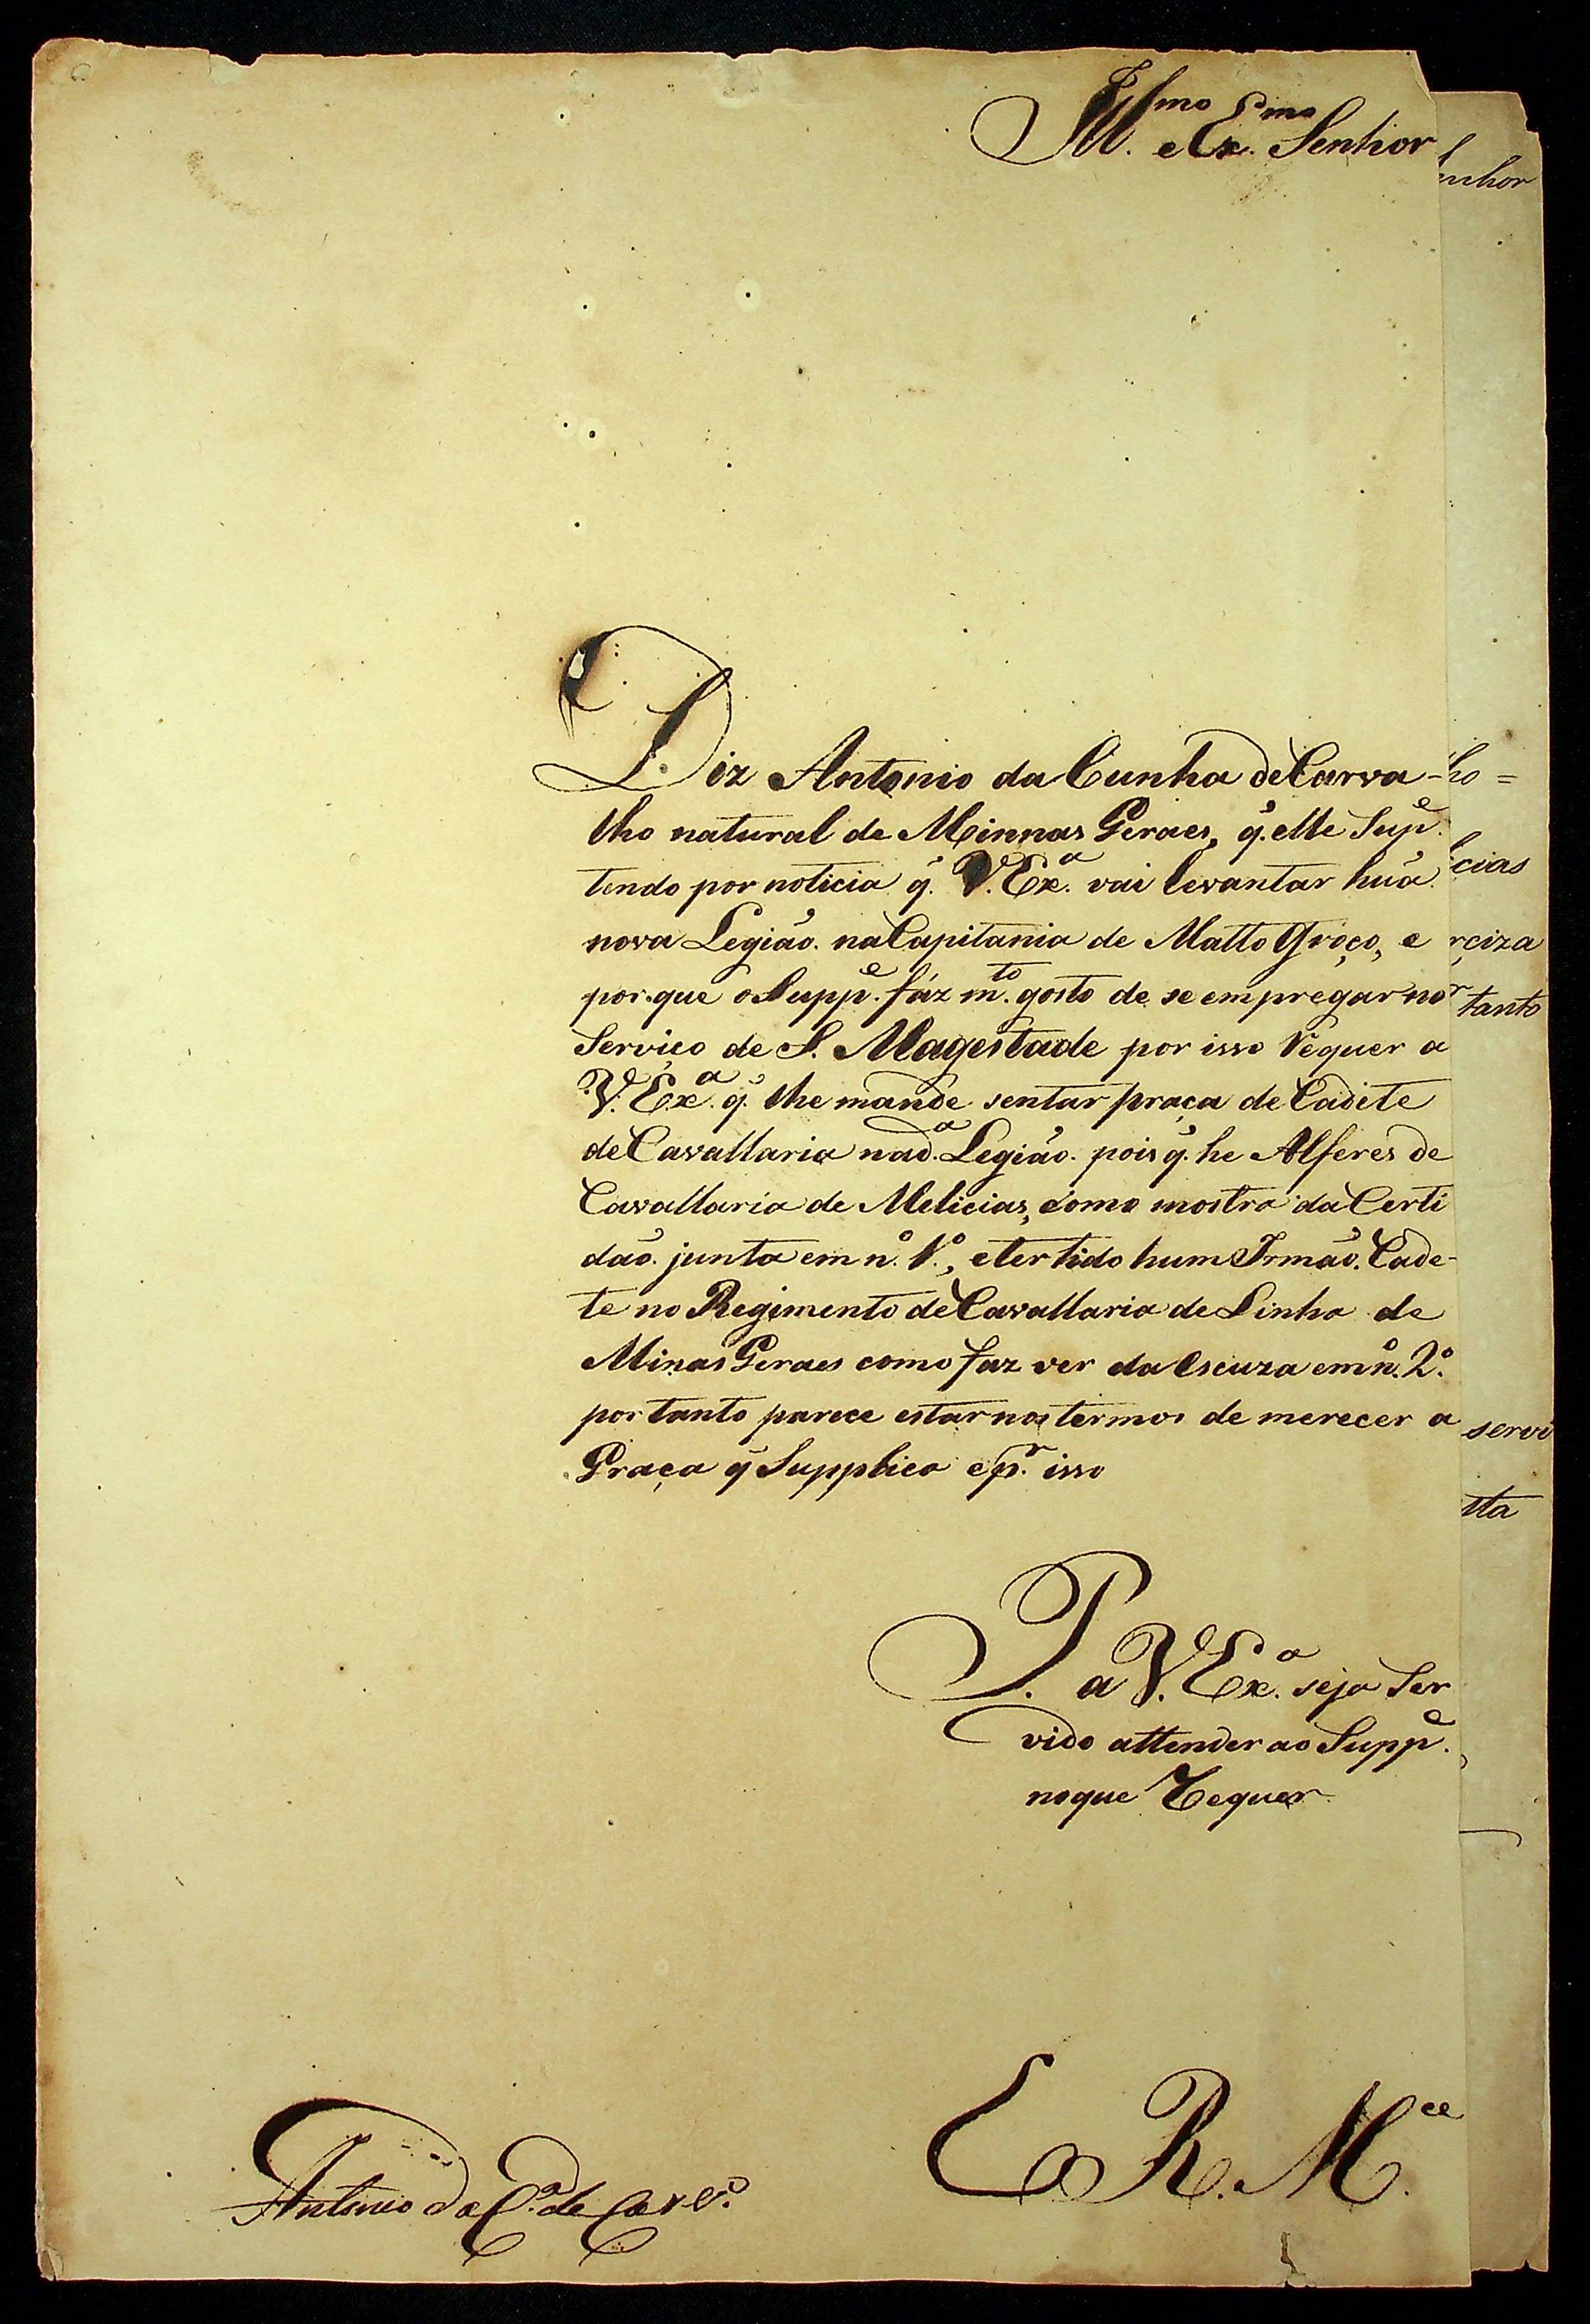 Ill.mo e Ex.mo Senhor
enhor
Diz Antonio da Cunha de Carva-
lho natural de Minnas Geraes, q̃. elle Sup.e
tendo por noticia q̃. V. Ex.a vai levantar huã
nova Legiaõ. na Capitania de Matto Groço, e
por.que o Supp.e fáz m.to gosto de se empregar no
Serviço de S. Magestade por isso Requer a
V. Ex.a q̃. lhe mande sentar praça de Cadite
de Cavallaria na d.a Legiaõ. pois q̃. he Alferes de
Cavallaria de Melicias, como mostra da Certi
daõ. junta em n.o 1.o, e ter tido hum Irmaõ. Cade-
te no Regimento de Cavallaria de Linha de
Minas Geraes como faz ver da Escuza em n.o 2.o
por tanto parece estar nos termos de merecer a
Praça q̃ Supplica e p.r isso
ho =
cias
rciza
tanto
servi
sta
P. a V. Ex.a seja Ser
vido attender ao Supp.e
no que Requer
E R. M.ce
Antonio da C.a de Carv.o